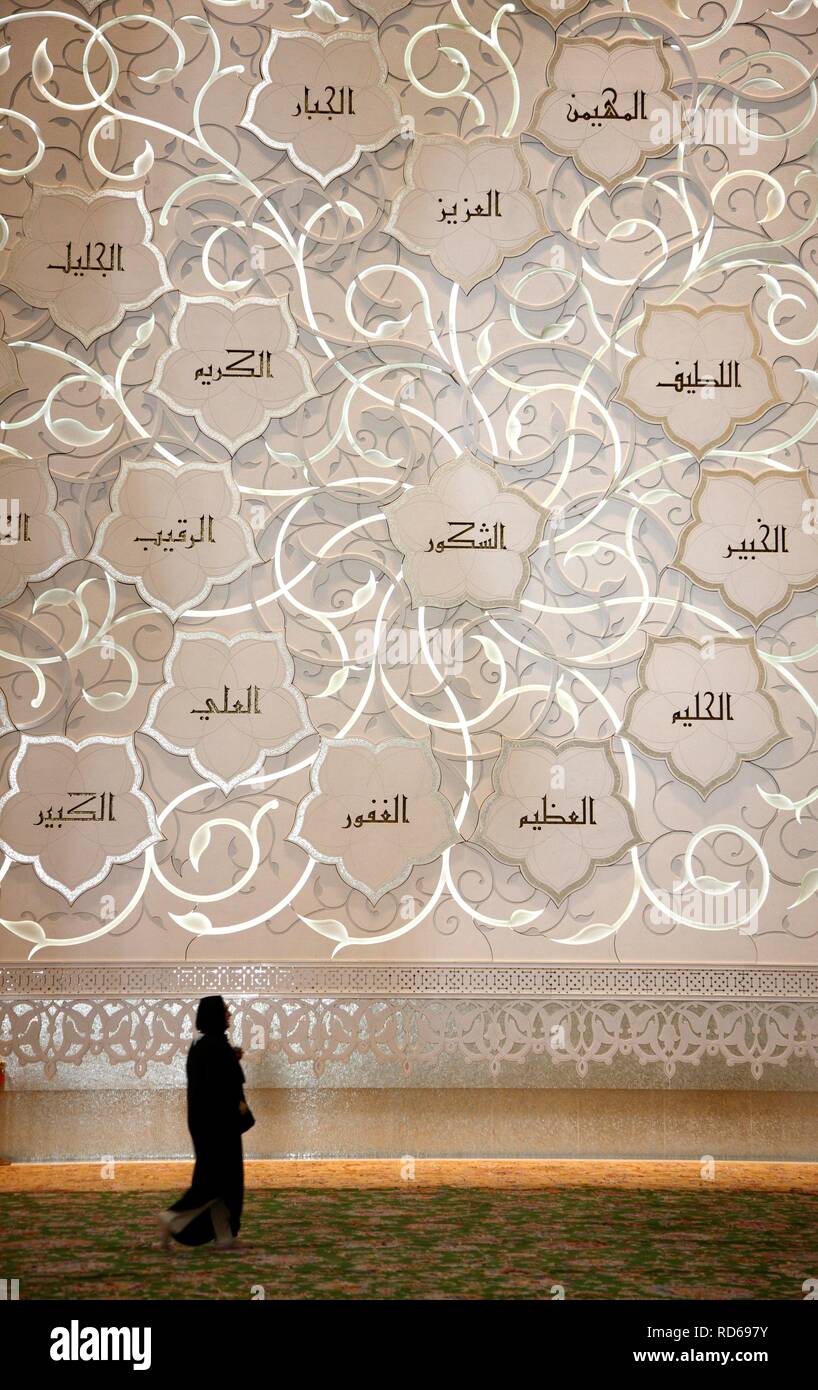 الجبار
المهيمن
العزيز
الجليل
الكريم
اللطيف
الرقيب
الشكور
الخبير
العلي
الحليم
الكبير
الغفور
العظيم
alamy
alamy
alamy
alamy
Image ID: RD697Y
www.alamy.com